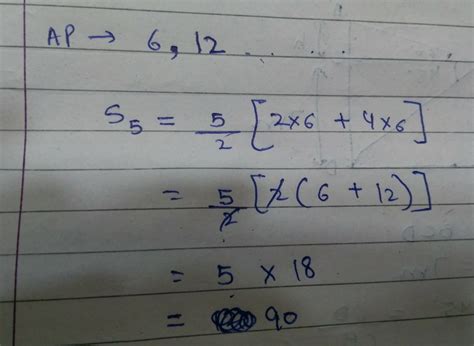 AP → 6, 12 . . . . .
S₅ = 5/2 [2×6 + 4×6]
= 5/2 [2(6 + 12)]
= 5 × 18
= 90